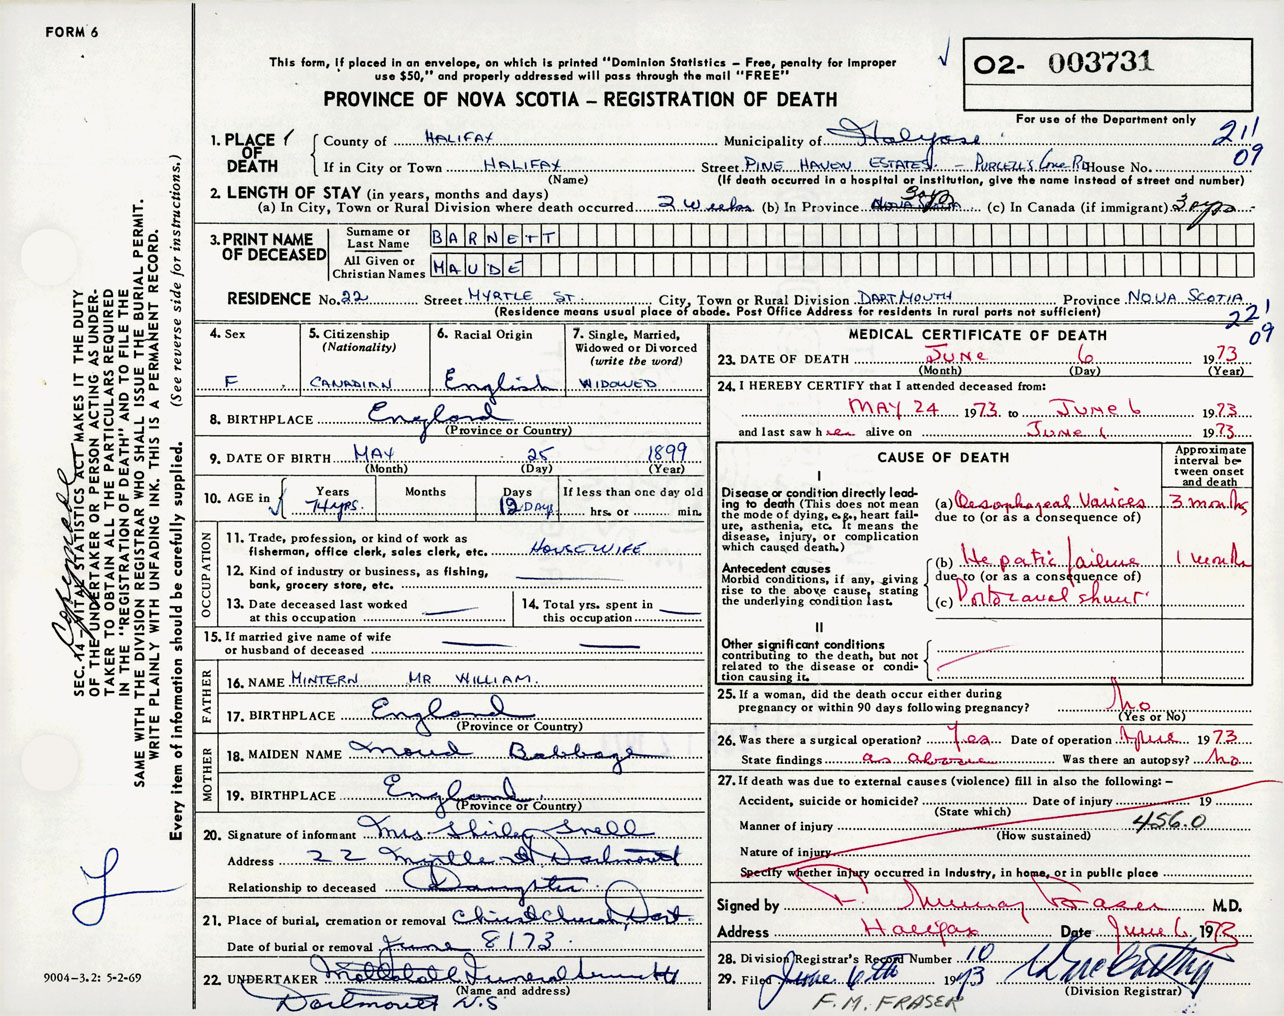 FORM 6
This form, if placed in an envelope, on which is printed "Dominion Statistics – Free, penalty for improper
use $50," and properly addressed will pass through the mail "FREE"
PROVINCE OF NOVA SCOTIA – REGISTRATION OF DEATH
O2- 003731
For use of the Department only
211
09
1. PLACE OF DEATH
County of HALIFAX
Municipality of
If in City or Town HALIFAX
(Name)
Street PINE HAVEN ESTATES. – PURCELL'S COVE RD House No.
(If death occurred in a hospital or institution, give the name instead of street and number)
2. LENGTH OF STAY (in years, months and days)
(a) In City, Town or Rural Division where death occurred 2 WEEKS (b) In Province 3 yrs (c) In Canada (if immigrant) 3 yrs
3. PRINT NAME OF DECEASED
Surname or Last Name BARNETT
All Given or Christian Names MAUDE
RESIDENCE No. 22 Street MYRTLE ST. City, Town or Rural Division DARTMOUTH Province NOVA SCOTIA
(Residence means usual place of abode. Post Office Address for residents in rural parts not sufficient)
221
09
4. Sex
F
5. Citizenship
(Nationality)
CANADIAN
6. Racial Origin
English
7. Single, Married,
Widowed or Divorced
(write the word)
WIDOWED
8. BIRTHPLACE England
(Province or Country)
9. DATE OF BIRTH MAY 25 1899
(Month) (Day) (Year)
10. AGE in
Years
74 yrs.
Months
Days
12 DAYS
If less than one day old
hrs. or min.
OCCUPATION
11. Trade, profession, or kind of work as
fisherman, office clerk, sales clerk, etc. HOUSEWIFE
12. Kind of industry or business, as fishing,
bank, grocery store, etc.
13. Date deceased last worked
at this occupation
14. Total yrs. spent in
this occupation
15. If married give name of wife
or husband of deceased
FATHER
16. NAME MINTERN MR WILLIAM.
17. BIRTHPLACE England
(Province or Country)
MOTHER
18. MAIDEN NAME Maud Babbage
19. BIRTHPLACE England
(Province or Country)
20. Signature of informant Mrs. Shirley Snell
Address 22 Myrtle St Dartmouth
Relationship to deceased Daughter.
21. Place of burial, cremation or removal Christ Church, Dart.
Date of burial or removal June 8 / 73
22. UNDERTAKER Mattatall Funeral
(Name and address)
Dartmouth N.S
MEDICAL CERTIFICATE OF DEATH
23. DATE OF DEATH JUNE 6 1973
(Month) (Day) (Year)
24. I HEREBY CERTIFY that I attended deceased from:
MAY 24 1973 to JUNE 6 1973
and last saw her alive on JUNE 1 1973
CAUSE OF DEATH
Approximate
interval be-
tween onset
and death
I
Disease or condition directly lead-
ing to death (This does not mean
the mode of dying, e.g., heart fail-
ure, asthenia, etc. It means the
disease, injury, or complication
which caused death.)
(a) Oesophageal Varices 3 months
due to (or as a consequence of)
Antecedent causes
Morbid conditions, if any, giving
rise to the above cause, stating
the underlying condition last.
(b) Hepatic failure 1 month
due to (or as a consequence of)
(c) Portocaval shunt
II
Other significant conditions
contributing to the death, but not
related to the disease or condi-
tion causing it.
25. If a woman, did the death occur either during
pregnancy or within 90 days following pregnancy? No
(Yes or No)
26. Was there a surgical operation? Yes Date of operation 1973
State findings as above Was there an autopsy? No
27. If death was due to external causes (violence) fill in also the following: –
Accident, suicide or homicide? Date of injury 19
(State which)
Manner of injury 456.0
(How sustained)
Nature of injury
Specify whether injury occurred in industry, in home, or in public place
Signed by F. Murray Fraser M.D.
Address Halifax Date June 6 1973
28. Division Registrar's Record Number 10
29. Filed June 6th 1973
(Division Registrar)
F. M. FRASER
SEC. 14 – VITAL STATISTICS ACT MAKES IT THE DUTY
OF THE UNDERTAKER OR PERSON ACTING AS UNDER-
TAKER TO OBTAIN ALL THE PARTICULARS REQUIRED
IN THE "REGISTRATION OF DEATH" AND TO FILE THE
SAME WITH THE DIVISION REGISTRAR WHO SHALL ISSUE THE BURIAL PERMIT.
WRITE PLAINLY WITH UNFADING INK. THIS IS A PERMANENT RECORD.
Every item of information should be carefully supplied. (See reverse side for instructions.)
9004–3.2: 5-2-69